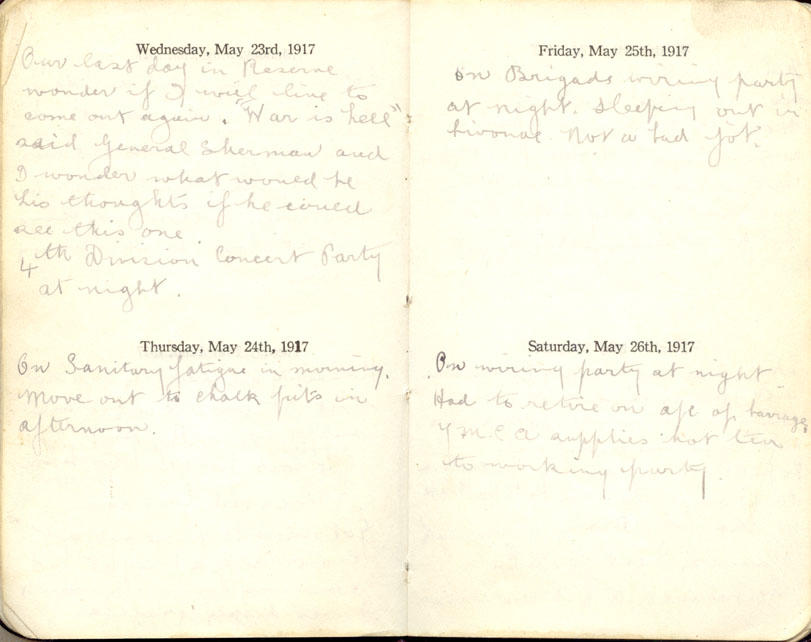 Wednesday, May 23rd, 1917
Our last day in Reserve
wonder if I will live to
come out again. "War is hell"
said General Sherman and
I wonder what would be
his thoughts if he could
see this one.
4th Division Concert Party
at night.
Thursday, May 24th, 1917
On Sanitary fatigue in morning.
Move out to chalk pits in
afternoon.
Friday, May 25th, 1917
On Brigade wiring party
at night. Sleeping out in
bivouac. Not a bad job.
Saturday, May 26th, 1917
On wiring party at night
Had to retire on a/c of barrage.
Y M C A supplies hot tea
to working party.